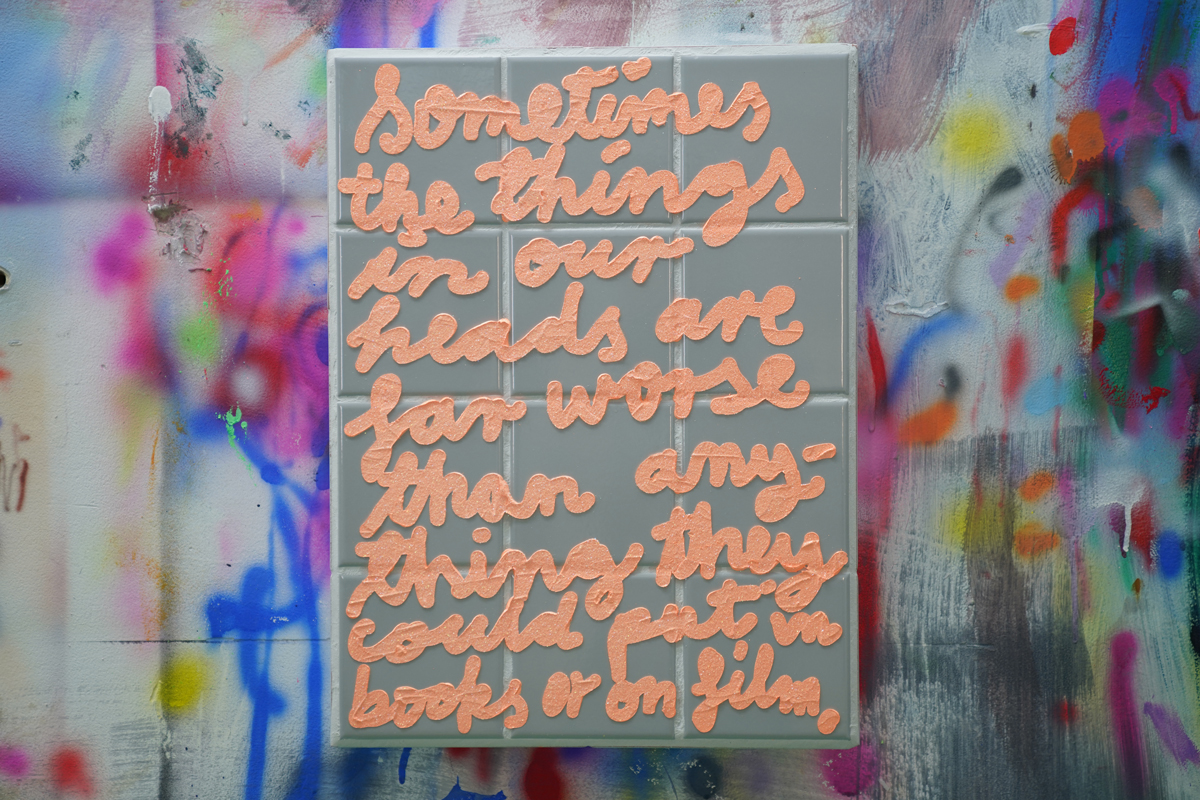 sometimes
the things
in our
heads are
far worse
than any-
thing they
could put in
books or on film.